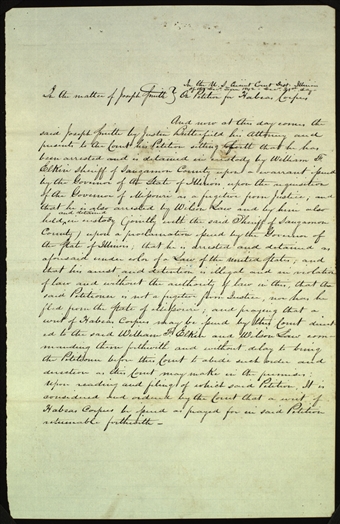 In the U.S. Circuit Court Dist. Illinois
In the matter of Joseph Smith } On Petition for Habeas Corpus
And now at this day comes the
said Joseph Smith by Justin Butterfield his Attorney and
presents to the Court his Petition setting forth that he has
been arrested and is detained in custody by William F.
Elkin Sheriff of Sangamon County upon a warrant issued
by the Governor of the State of Illinois upon the requisition
of the Governor of Missouri as a fugitive from justice, and
that he is also arrested by Wilson Law and by him also
and detained
held in custody (jointly with the said Sheriff of Sangamon
County) upon a proclamation issued by the Governor of
the State of Illinois; that he is arrested and detained as
aforesaid under color of a Law of the United States, and
that his arrest and detention is illegal and in violation
of law and without the authority of law in this, that the
said Petitioner is not a fugitive from Justice, nor has he
fled from the State of Missouri; and praying that a
writ of Habeas Corpus may be issued by this Court direct
ed to the said William F. Elkin and Wilson Law com
manding them forthwith and without delay to bring
the Petitioner before this Court to abide such order and
direction as this Court may make in the premises;
Upon reading and filing of which said Petition, It is
considered and ordered by the Court that a writ of
Habeas Corpus be issued as prayed for in said Petition
returnable forthwith —